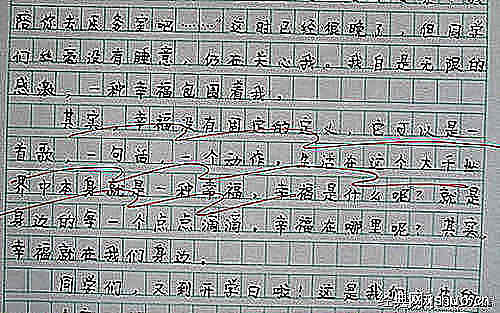 陪你去医务室吧……这时已经很晚了，但同学
们丝毫没有睡意，仍在关心我。我自是无限的
感激，一种幸福包围着我。
其实，幸福没有固定的定义，它可以是一
首歌，一句话，一个动作，生活在这个大千世
界中本身就是一种幸福，幸福是什么呢？就是
身边的每一个点点滴滴，幸福在哪里呢？其实，
幸福就在我们身边。
同学们，又到开学日啦！这是我们